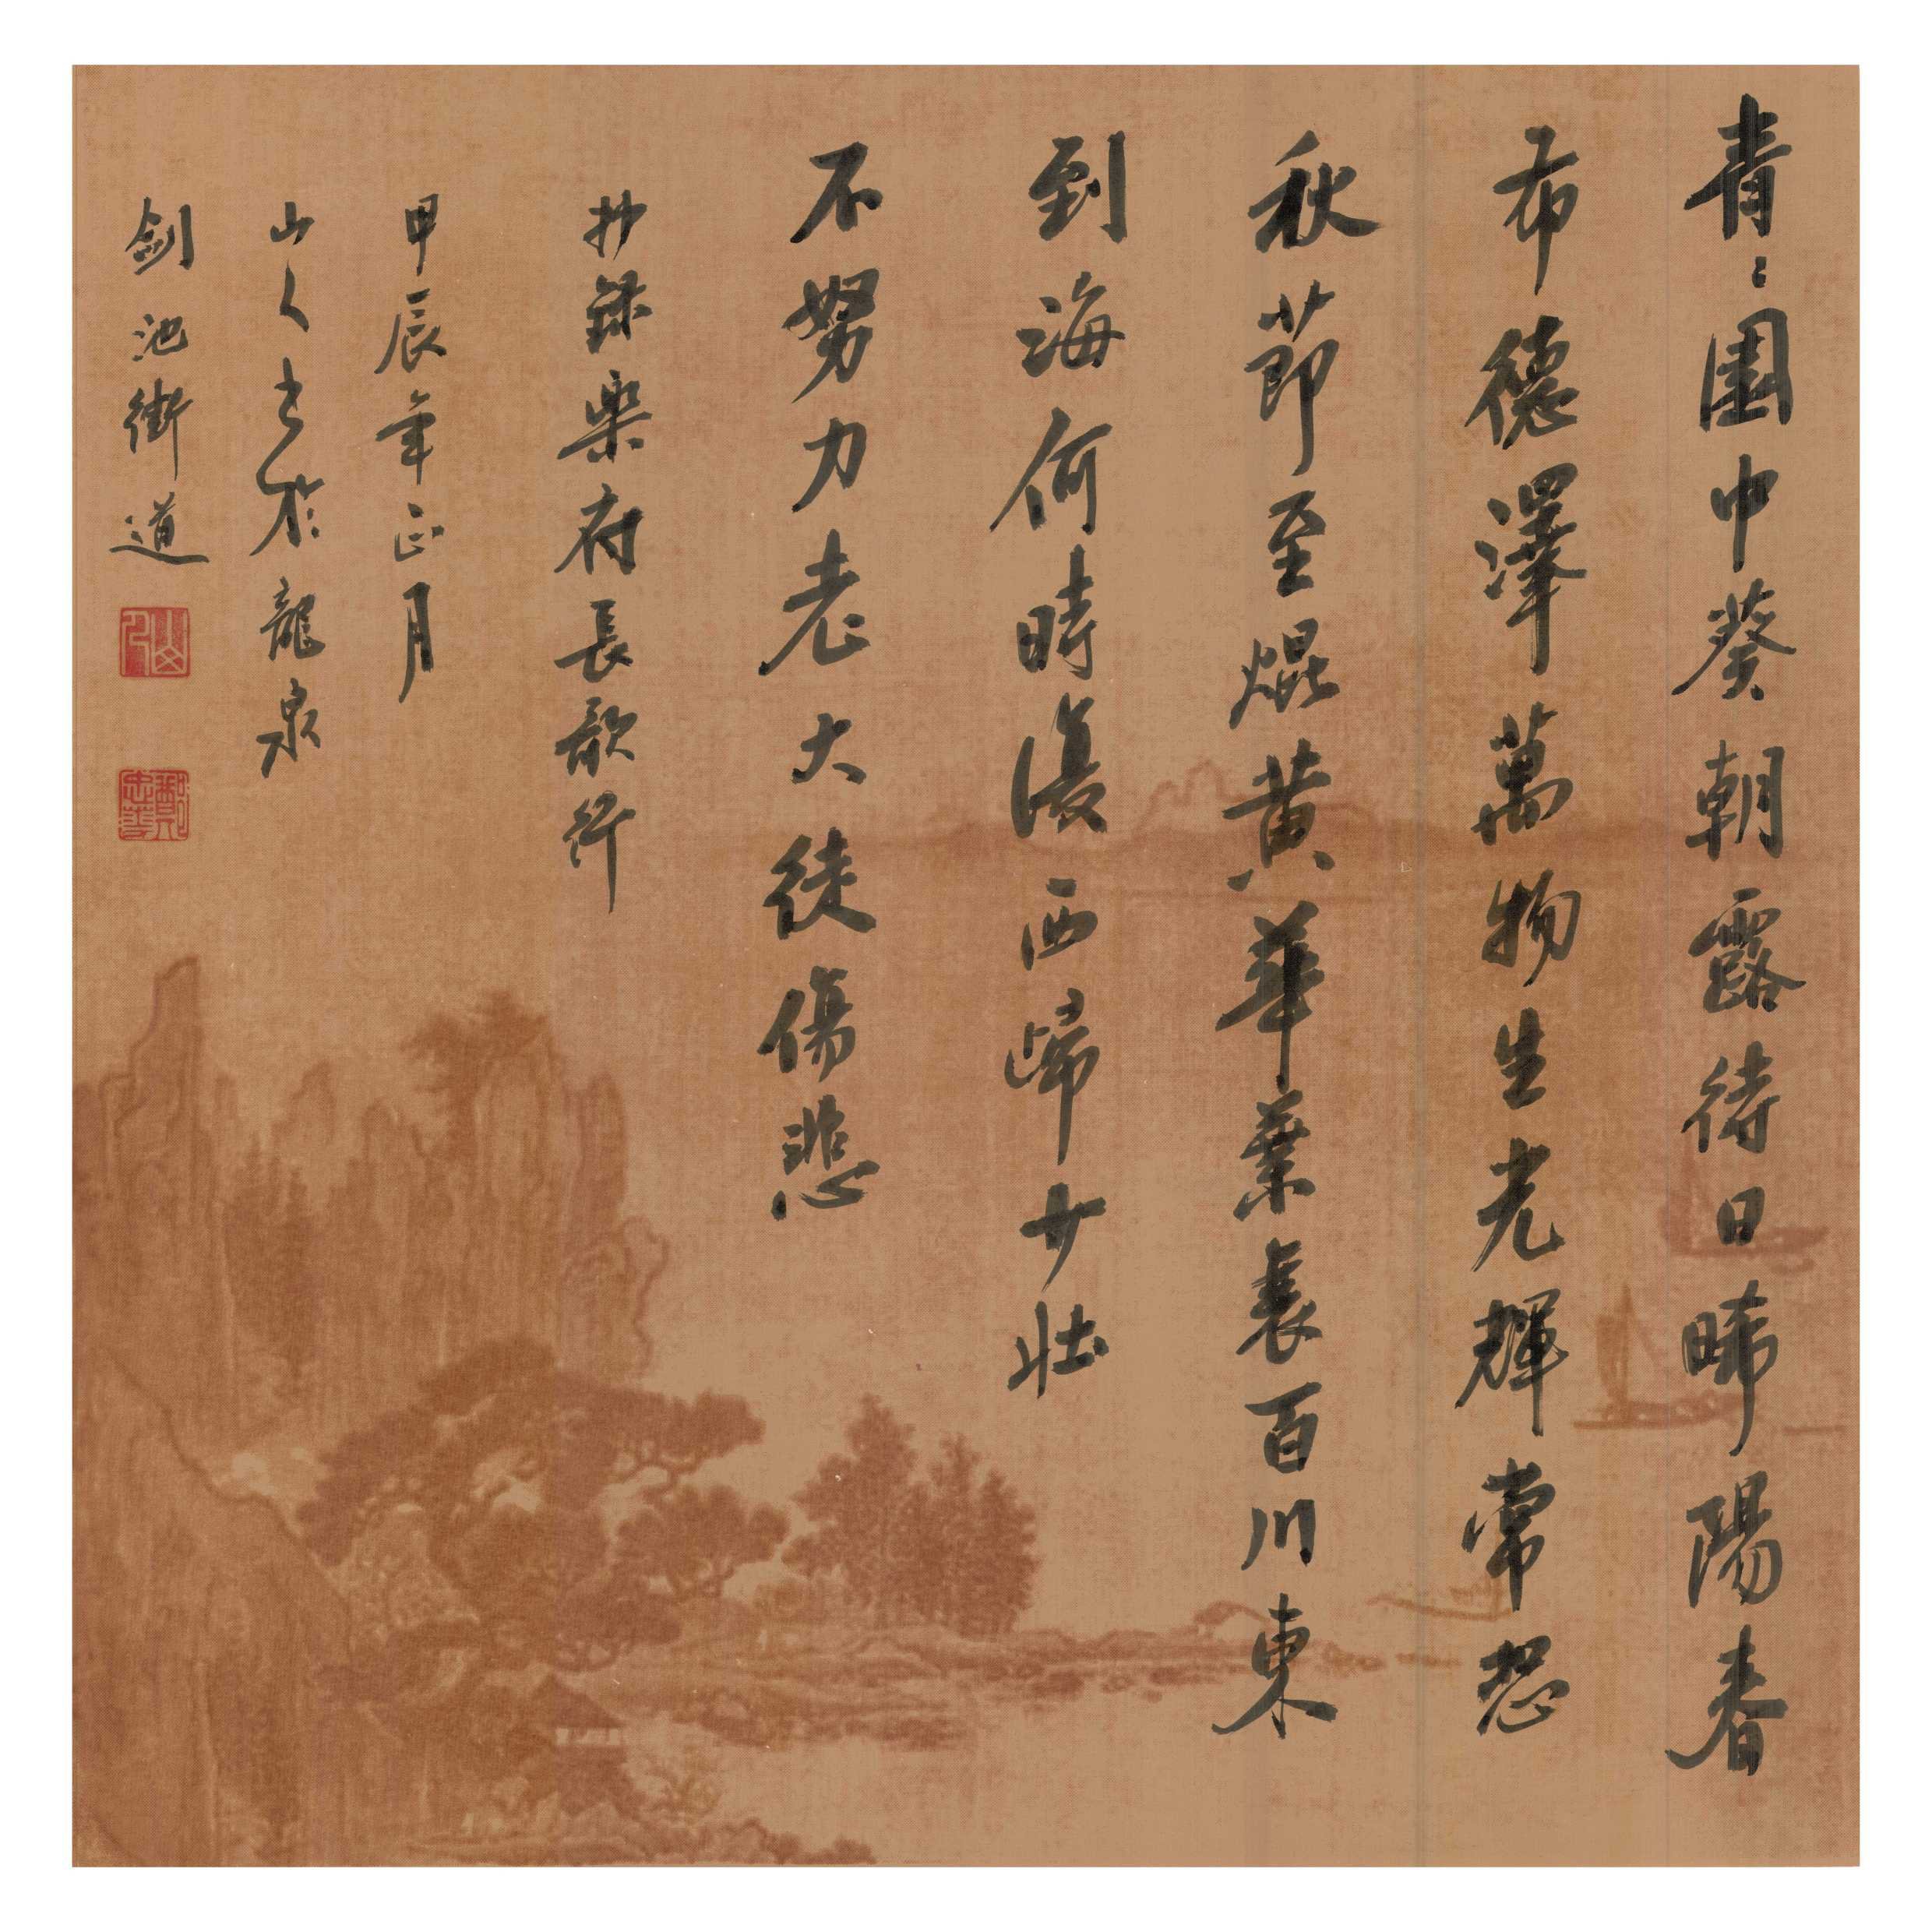 青〻園中葵朝露待日晞陽春
布德澤萬物生光輝常恐
秋節至焜黃華葉衰百川東
到海何時復西歸少壯
不努力老大徒傷悲
抄錄樂府長歌行
甲辰年正月
山人書於龍泉
劍池街道